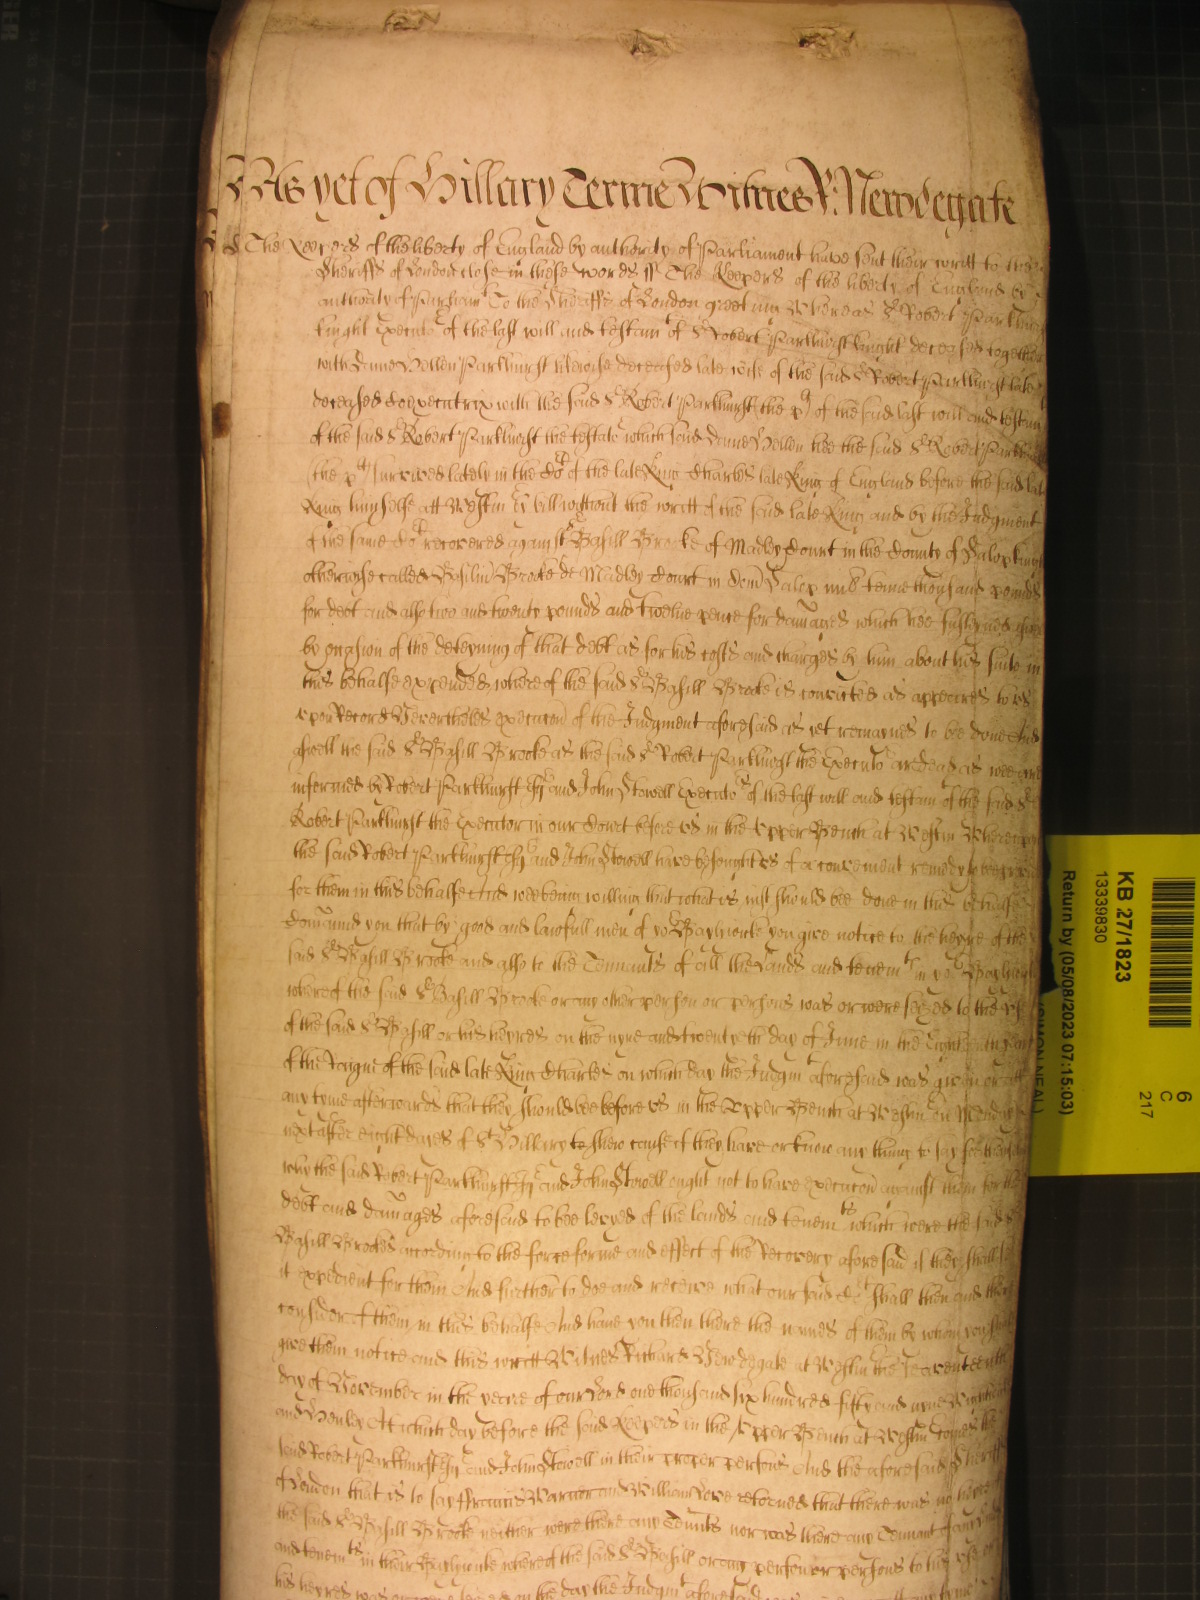 As yet of Hillary Terme Witnes R: Newdegate
The Keepers of the liberty of England by authority of Parliament have sent their writt to their
Sheriffs of London close in these words ss The Keepers of the liberty of England by
authority of Parliamt To the Sheriffs of London greeting Whereas Sr Robert Parkhurst
knight Executor of the last will and testamt of Sr Robert Parkhurst knight deceased together
with Dame Hellen Parkhurst likewise deceased late wife of the said Sr Robert Parkhurst late
deceased Coexecutrix with the said Sr Robert Parkhurst the of the said last will and testam
of the said Sr Robert Parkhurst the testator which said Dame Hellen hee the said Sr Robert Parkhurst
the survived lately in the Cort of the late King Charles late King of England before the said late
King himselfe att Westm by bill without the writt of the said late King and by the Judgment
of the same Cort recovered against Sr Basill Brooke of Madley Court in the County of Salop knight
otherwise called Basiliu Brooke de Madley Court in Com Salop milt tenne thousand pounds
for debt and also two and twenty pounds and twelve pence for damages which hee susteyned
by occasion of the deteyning of that debt as for his costs and charges by him about his suite in
this behalfe expended whereof the said Sr Basill Brooke is convicted as appeares to us
upon Record Neverthelesse execucon of the Judgment aforesaid as yet remaynes to bee done And
aswell the said Sr Basill Brooke as the said Sr Robert Parkhurst the Executor are dead as wee are
informed by Robert Parkhurst Esqr and John Stowell Executors of the last will and testam of the said Sr
Robert Parkhurst the Executor in our Court before us in the Upper Bench at Westm Whereupon
the said Robert Parkhurst Esqr and John Stowell have besought us of a convenient remedy to bee
for them in this behalfe And wee being willing that what is just should bee done in this behalfe
Comaund you that by good and lawfull men of yor Baylywicke you give notice to the heyre of the
said Sr Basill Brooke and also to the Tennants of all the lands and tenemts in yor Baylywicke
whereof the said Sr Basill Brooke or any other person or persons was or were seized to the use
of the said Sr Basill or his heyres on the nyne and twentyeth day of June in the
of the Raigne of the said late King Charles on which day the Judgmt aforesaid was given or att
any tyme afterwards that they should bee before us in the Upper Bench at Westm on Monday
next after eight dayes of St Hillary to shew cause if they have or know any thing to say for themselves
why the said Robert Parkhurst Esqr and John Stowell ought not to have execucon against them for the
debt and damages aforesaid to bee levyed of the lands and tenemts which were the said Sr
Basill Brookes according to the force forme and effect of the Recovery aforesaid if they shall
it expedient for them And further to doe and receive what our said Cort shall then and there
consider of them in this behalfe And have you then there the names of them by whom you shall
give them notice and this writt Witnes Richard Newdegate at Westm the seaventeenth
day of November in the yeere of our Lord one thousand six hundred fifty and nyne
and Henley At which day before the said Keepers in the Upper Bench at Westm comes the
said Robert Parkhurst Esqr and John Stowell in their proper persons And the aforesaid Sheriffs
of London that is to say Francis Warner and William Love retorned that there was no heyre of
the said Sr Basill Brooke neither were there any Tennts nor was there any Tennant of any lands
and tenemts in their Baylywicke whereof the said Sr Basill or any person or persons to his use or
his heyres was or were seized on the day the Judgmt aforesaid
KB 27/1823
13339830
Return by (05/08/2023 07:15:03)
(SIMON NEAL)
6
C
217